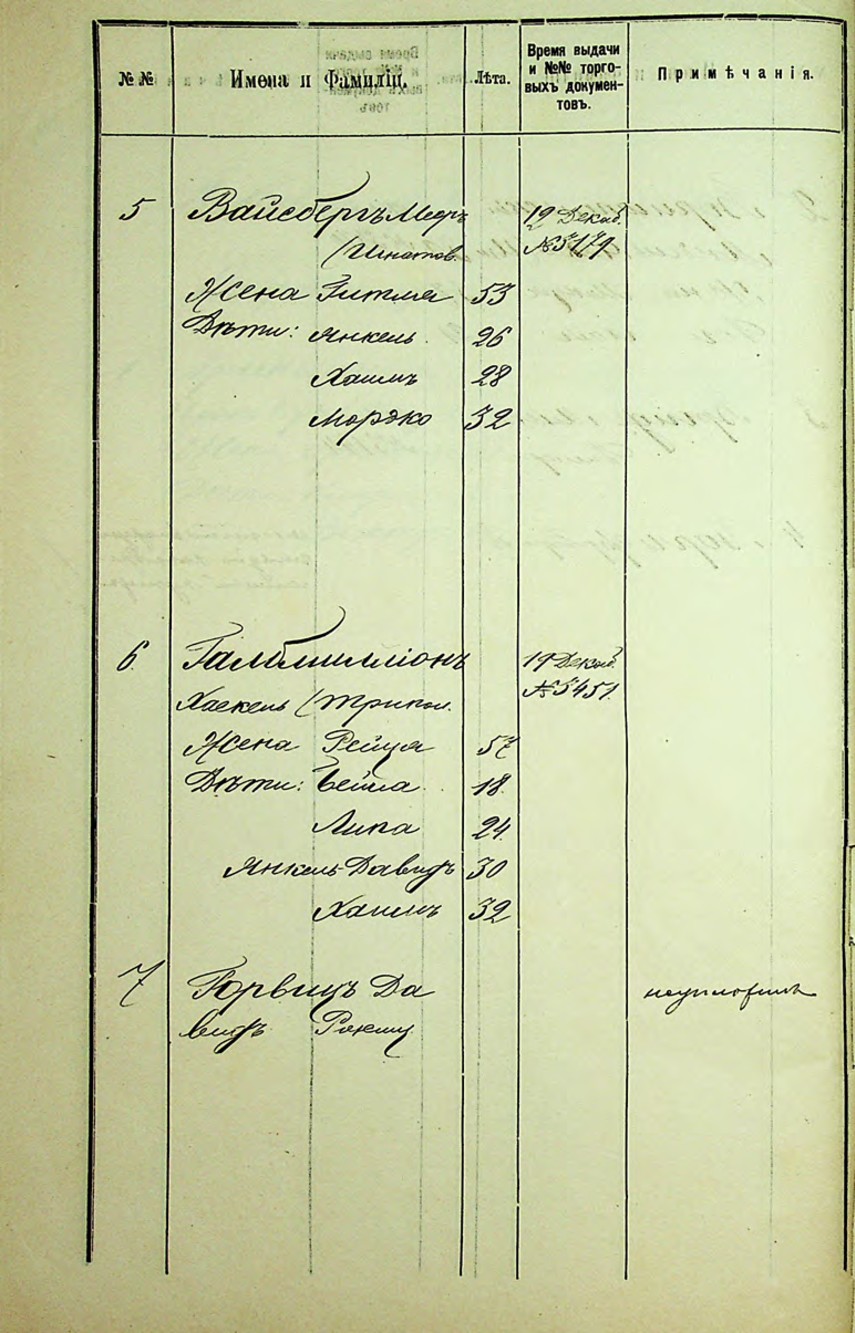 №№
Имена и Фамиліи.
Лѣта.
Время выдачи
и №№ торго-
выхъ докумен-
товъ.
Примѣчанія.
5 Вайсбергъ Мееръ 19 Декаб.
(Игнатов. №5179
Жена Гитля 53
Дѣти: Янкель 26
Хаимъ 28
Мордко 32
6 19 Декаб.
Хаскель (Трипол. №5451.
Жена Рейзя 57
Дѣти: Бейла 18.
Липа 24.
Янкель-Давидъ 30
Хаимъ 32
7 Горвицъ Да
видъ